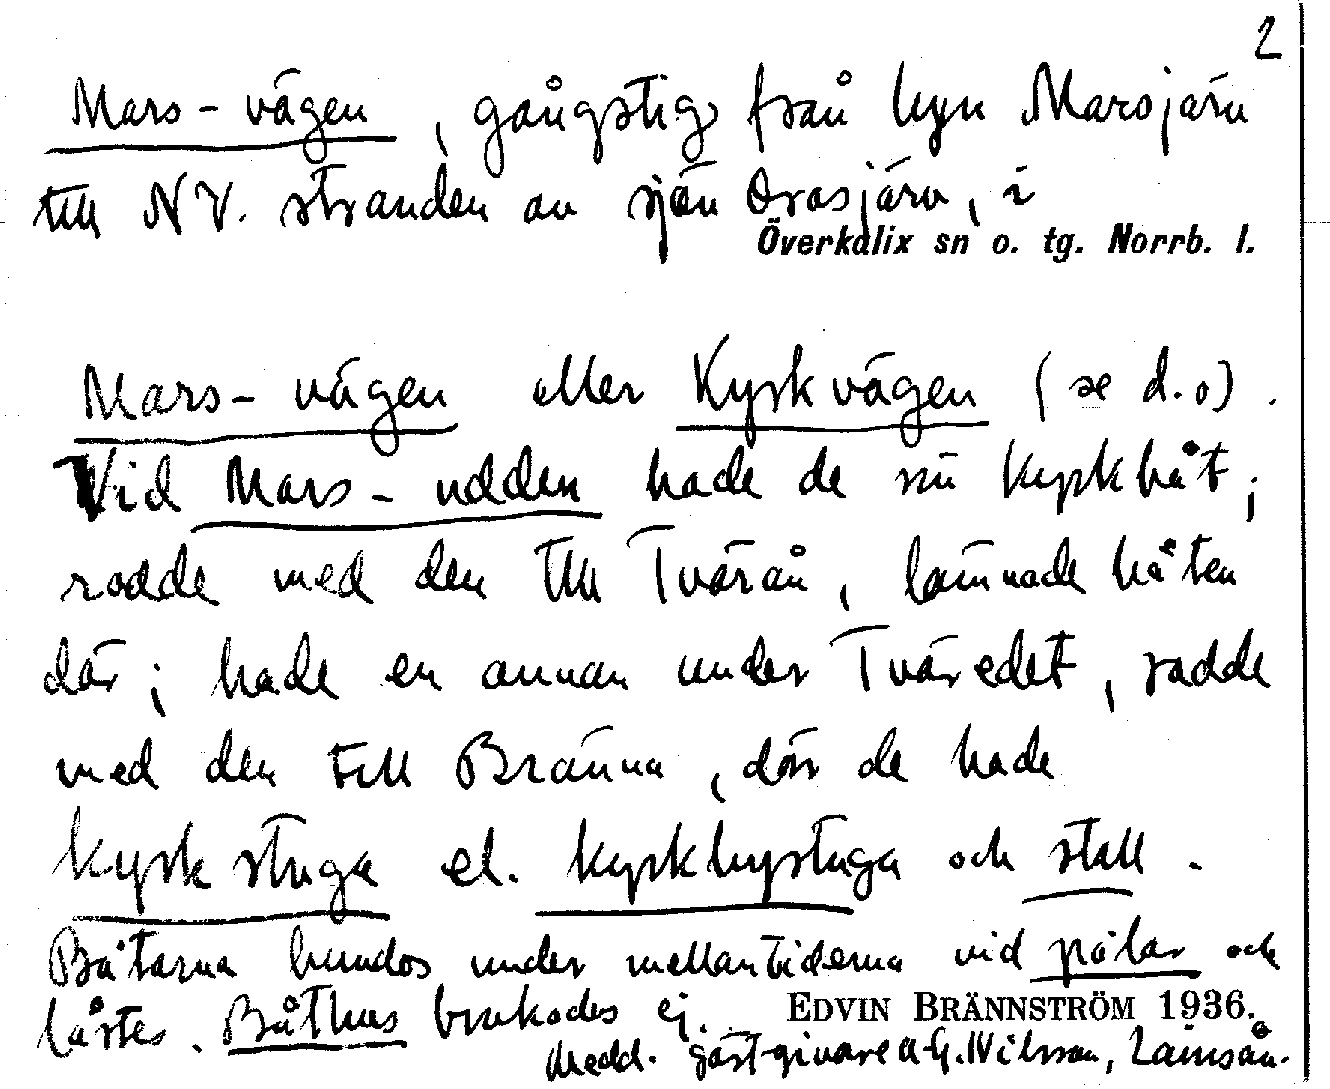 2
Mars-vägen, gångstig från byn Marsjärv
till NV. stranden av sjön Orasjärv, i
Överkalix sn o. tg. Norrb. l.
Mars-vägen eller Kyrkvägen (se d.o).
Vid Mars-udden hade de sin kyrkbåt;
rodde med den till Tvärån, lämnade båten
där; hade en annan under Tväredet, rodde
med den till Bränna, där de hade
kyrkstuga el. kyrkbystuga och stall.
Båtarna bundos under mellantiderna vid pålar och
låstes. Båthus brukades ej. EDVIN BRÄNNSTRÖM 1936.
Medd. gästgivare A.G. Nilsson, Lansån.